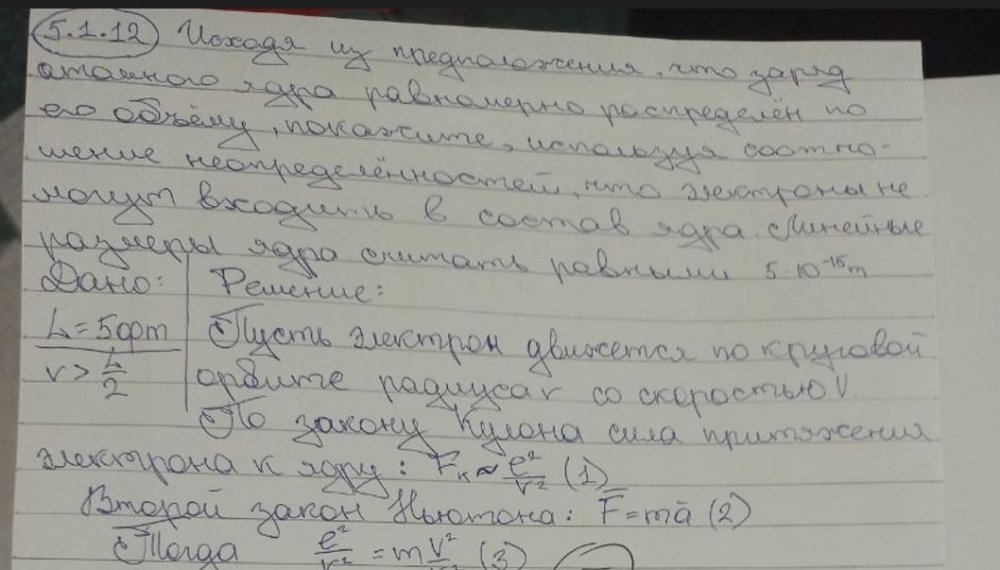 5.1.12 Исходя из предположения, что заряд
атомного ядра равномерно распределён по
его объёму, покажите, используя соотно-
шение неопределённостей, что электроны не
могут входить в состав ядра. Линейные
размеры ядра считать равными 5·10⁻¹⁵m
Дано: Решение:
L = 5фm Пусть электрон движется по круговой
r > L/2 орбите радиуса r со скоростью V.
По закону Кулона сила притяжения
электрона к ядру: Fк ≈ e²/r² (1)
Второй закон Ньютона: F̄ = mā (2)
Тогда e²/r² = m V²/r (3)